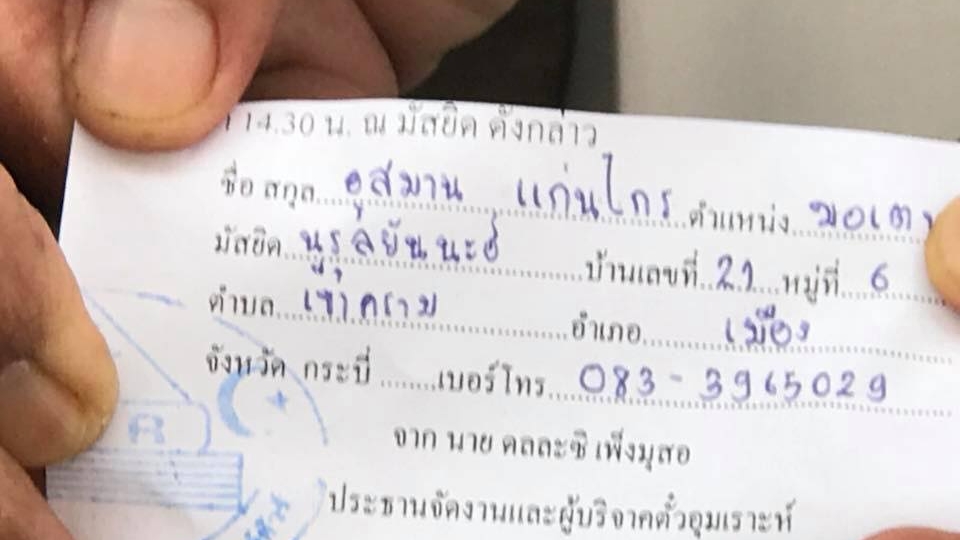 14.30 น. ณ มัสยิด ดังกล่าว
ชื่อ สกุล....อูสมาน แก่นไกร....ตำแหน่ง....
มัสยิด....นูรุลยันนะฮ์....บ้านเลขที่..21....หมู่ที่ 6
ตำบล....เขาคราม....อำเภอ....เมือง....
จังหวัด กระบี่ .......เบอร์โทร....083-3965029
จาก นาย ดลละซิ เพ็งมุสอ
ประธานจัดงานและผู้บริจาคตั๋วอุมเราะห์